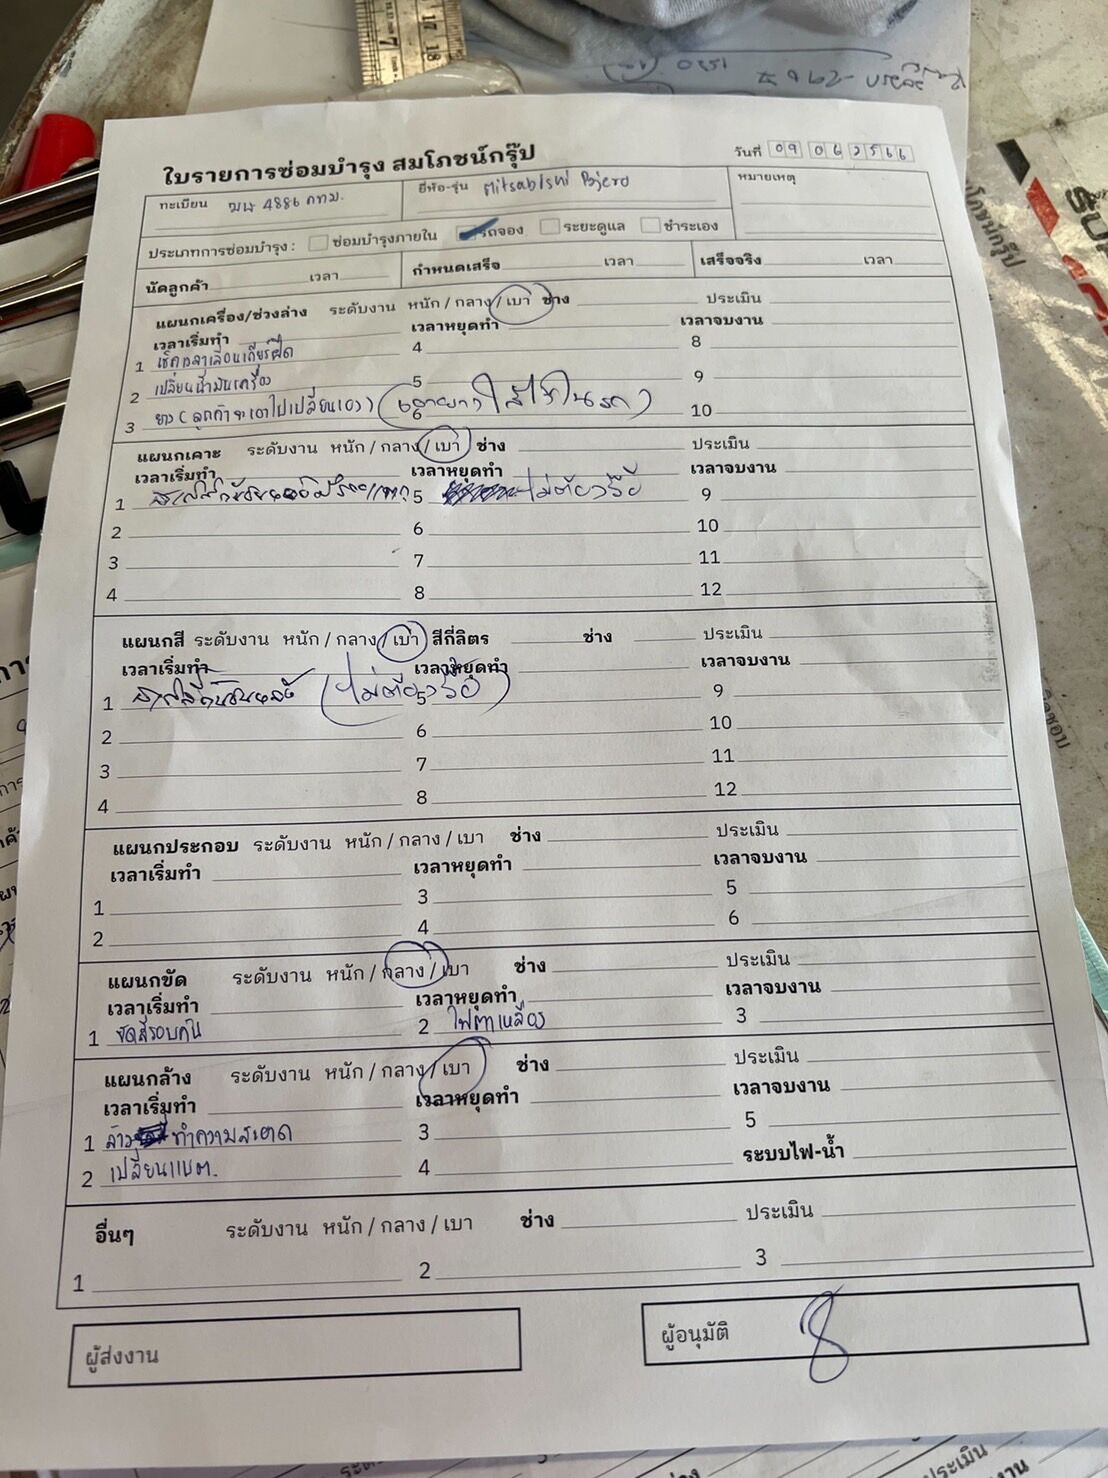 ใบรายการซ่อมบำรุง สมโภชน์กรุ๊ป
วันที่ 09 06 2566
ทะเบียน 4886 กทม. ยี่ห้อ-รุ่น Mitsabishi Pajero หมายเหตุ
ประเภทการซ่อมบำรุง : ซ่อมบำรุงภายใน รถจอง ระยะดูแล ชำระเอง
นัดลูกค้า เวลา กำหนดเสร็จ เวลา เสร็จจริง เวลา
แผนกเครื่อง/ช่วงล่าง ระดับงาน หนัก / กลาง / เบา ช่าง ประเมิน
เวลาเริ่มทำ เวลาหยุดทำ เวลาจบงาน
1 เช็คเวลาเลื่อนเกียร์ฝืด 4 8
2 เปลี่ยนน้ำมันเครื่อง 5 9
3 ยาง (ลูกค้าจะเอาไปเปลี่ยนเอง) 6 10
แผนกเคาะ ระดับงาน หนัก / กลาง / เบา ช่าง ประเมิน
เวลาเริ่มทำ เวลาหยุดทำ เวลาจบงาน
1 5 ไม่ต้องรื้อ 9
2 6 10
3 7 11
4 8 12
แผนกสี ระดับงาน หนัก / กลาง / เบา สีกี่ลิตร ช่าง ประเมิน
เวลาเริ่มทำ เวลาหยุดทำ เวลาจบงาน
1 (ไม่ต้องรื้อ) 5 9
2 6 10
3 7 11
4 8 12
แผนกประกอบ ระดับงาน หนัก / กลาง / เบา ช่าง ประเมิน
เวลาเริ่มทำ เวลาหยุดทำ เวลาจบงาน
1 3 5
2 4 6
แผนกขัด ระดับงาน หนัก / กลาง / เบา ช่าง ประเมิน
เวลาเริ่มทำ เวลาหยุดทำ เวลาจบงาน
1 ขัดสีรอบคัน 2 ไฟตาเหลือง 3
แผนกล้าง ระดับงาน หนัก / กลาง / เบา ช่าง ประเมิน
เวลาเริ่มทำ เวลาหยุดทำ เวลาจบงาน
1 ล้าง ทำความสะอาด 3 5
2 เปลี่ยนแบต. 4 ระบบไฟ-น้ำ
อื่นๆ ระดับงาน หนัก / กลาง / เบา ช่าง ประเมิน
1 2 3
ผู้ส่งงาน ผู้อนุมัติ